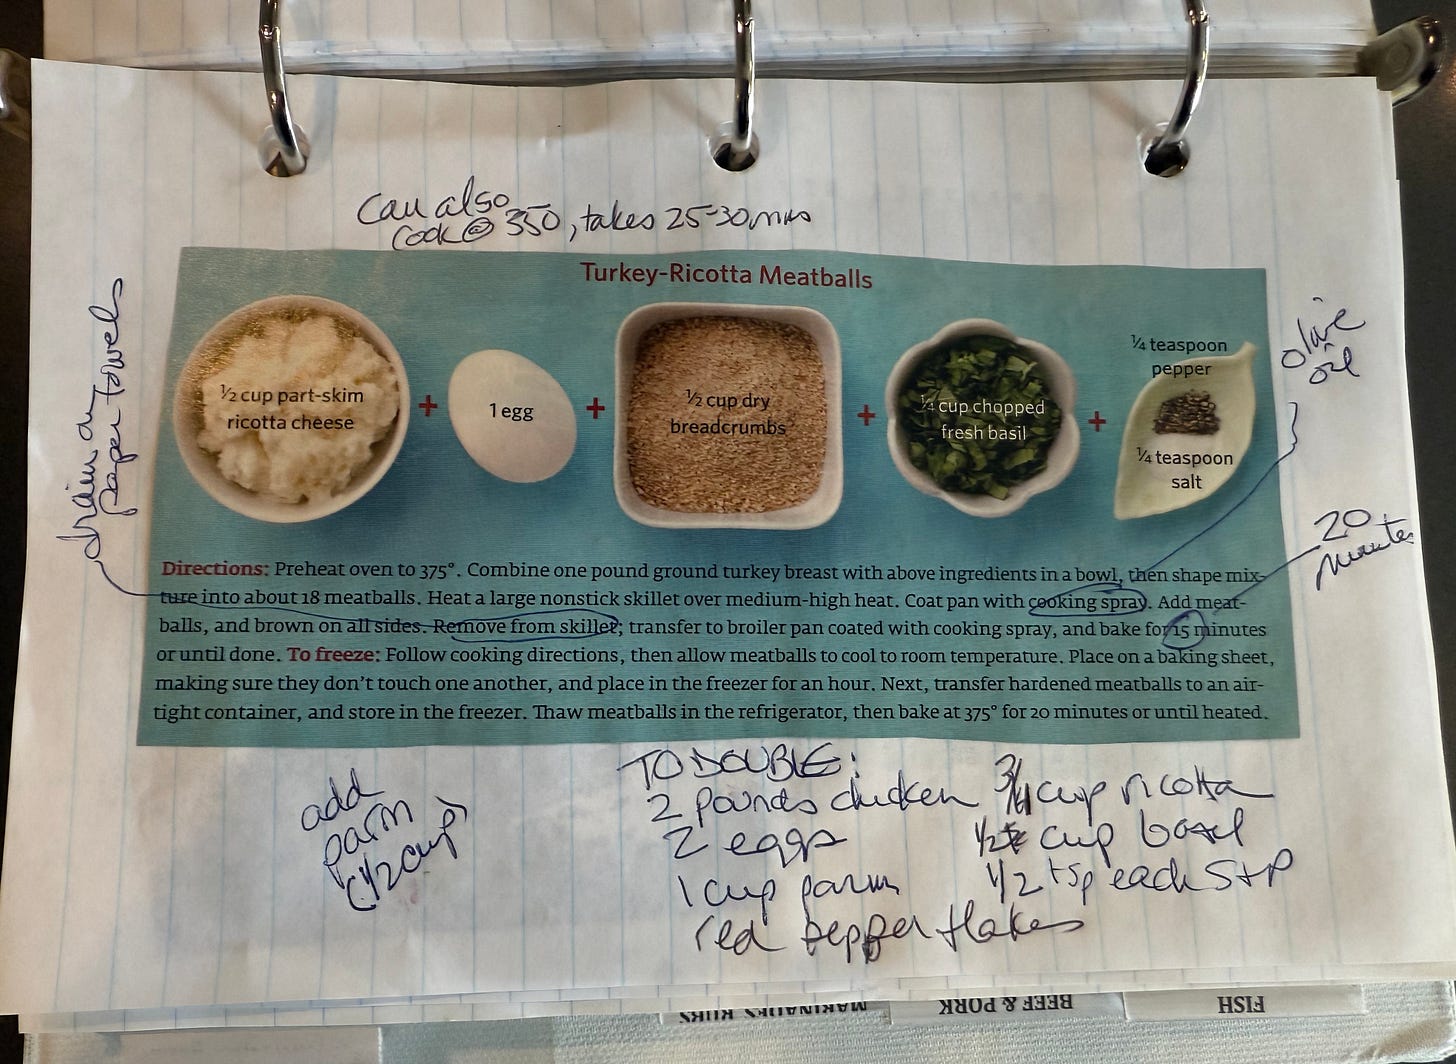 Can also
cook @ 350, takes 25-30 mins
Turkey-Ricotta Meatballs
½ cup part-skim
ricotta cheese
+
1 egg
+
½ cup dry
breadcrumbs
+
¼ cup chopped
fresh basil
+
¼ teaspoon
pepper
¼ teaspoon
salt
olive
oil
drain on
paper towels
20
minutes
Directions: Preheat oven to 375°. Combine one pound ground turkey breast with above ingredients in a bowl, then shape mix-
ture into about 18 meatballs. Heat a large nonstick skillet over medium-high heat. Coat pan with cooking spray. Add meat-
balls, and brown on all sides. Remove from skillet; transfer to broiler pan coated with cooking spray, and bake for 15 minutes
or until done. To freeze: Follow cooking directions, then allow meatballs to cool to room temperature. Place on a baking sheet,
making sure they don't touch one another, and place in the freezer for an hour. Next, transfer hardened meatballs to an air-
tight container, and store in the freezer. Thaw meatballs in the refrigerator, then bake at 375° for 20 minutes or until heated.
add
parm
(1/2 cup)
TO DOUBLE:
2 pounds chicken
2 eggs
1 cup parm
red pepper flakes
3/4 cup ricotta
1/2 cup basil
1/2 tsp each S+P
MARINADES RUBS
BEEF & PORK
FISH